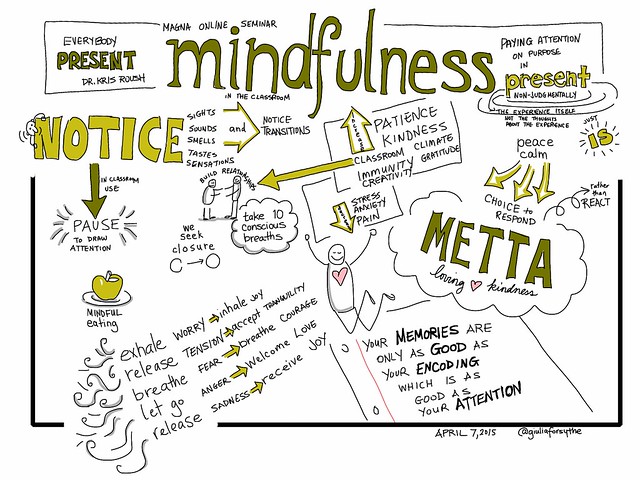 MAGNA ONLINE SEMINAR
EVERYBODY
PRESENT
DR. KRIS ROUSH
mindfulness
IN THE CLASSROOM
PAYING ATTENTION
ON PURPOSE
IN
present
NON-JUDGMENTALLY
THE EXPERIENCE ITSELF
NOT THE THOUGHTS
ABOUT THE EXPERIENCE
JUST
IS
NOTICE
SIGHTS
SOUNDS
SMELLS
TASTES
SENSATIONS
and
NOTICE
TRANSITIONS
IN CLASSROOM
USE
PAUSE
TO DRAW
ATTENTION
BUILD RELATIONSHIPS
we
seek
closure
take 10
conscious
breaths
INCREASE
PATIENCE
KINDNESS
CLASSROOM CLIMATE
IMMUNITY GRATITUDE
CREATIVITY
STRESS
ANXIETY
PAIN
peace
calm
CHOICE to
RESPOND
rather
than
REACT
METTA
loving kindness
MINDFUL
eating
exhale WORRY inhale JOY
release TENSION accept TRANQUILITY
breathe FEAR breathe COURAGE
let go ANGER Welcome LOVE
release SADNESS receive JOY
YOUR MEMORIES ARE
ONLY AS GOOD AS
YOUR ENCODING
WHICH IS AS
GOOD AS
YOUR ATTENTION
APRIL 7, 2015 @giuliaforsythe